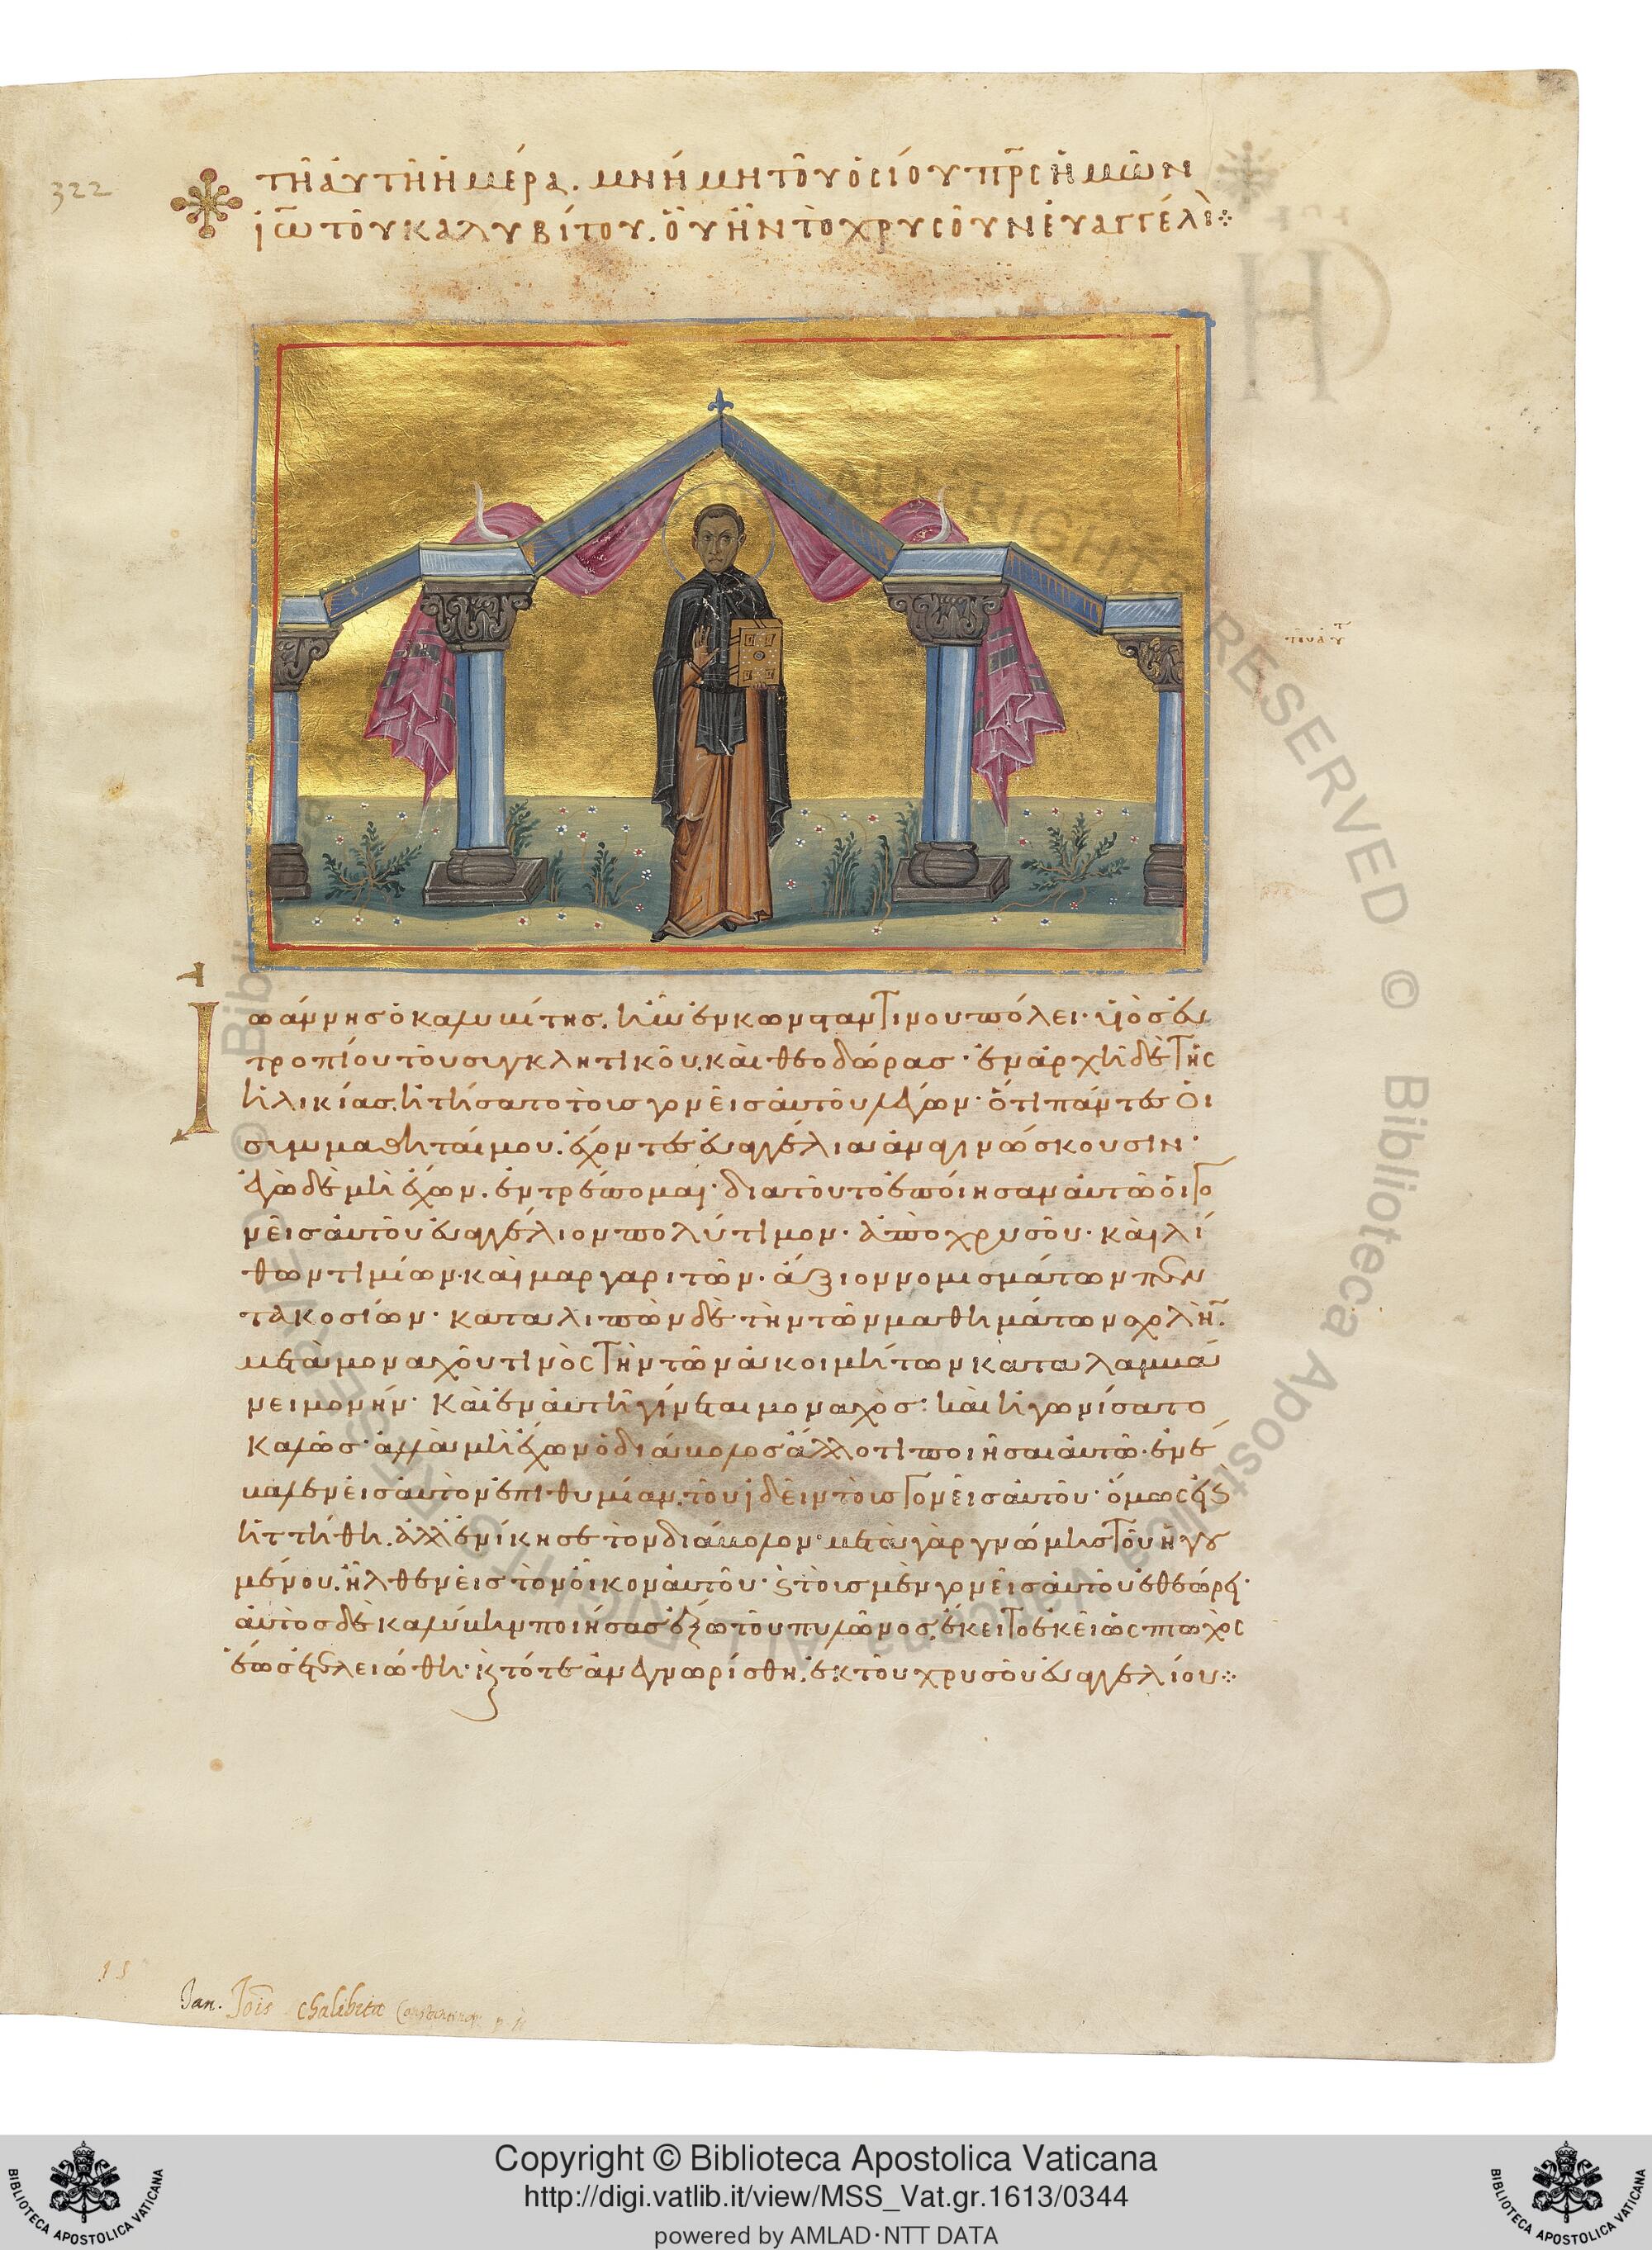 322
τῇ αὐτῇ ἡμέρᾳ. μνήμη τοῦ ὁσίου πρ̅ς ἡμῶν
ἰω̅ τοῦ καλυβίτου. οὗ ἦν τὸ χρυσοῦν εὐαγγέλι
Ἰωάννης ὁ καλυβίτης. ἦν ἐν κωνσταντινουπόλει· υἱὸς εὐ
τροπίου τοῦ συγκλητικοῦ. καὶ θεοδώρας· ἐν ἀρχῇ δὲ τῆς
ἡλικίας. ἠτήσατο τοῖς γονεῖς αὐτοῦ λέγων· ὅτι πάντες οἱ
συμμαθηταί μου. ἔχοντες εὐαγγέλια ἀναγινώσκουσιν·
ἐγὼ δὲ μὴ ἔχων. ἐντρέπομαι· διατοῦτο ἐποίησαν αὐτῶ οἱ γο
νεῖς αὐτοῦ εὐαγγέλιον πολύτιμον· ἀπὸ χρυσοῦ· καὶ λί
θων τιμίων. καὶ μαργαριτῶν· ἄξιον νομισμάτων πεν
τακοσίων· καταλιπὼν δὲ τὴν τῶν μαθημάτων σχολὴ̅.
μετὰ μοναχοῦ τινὸς τὴν τῶν ἀκοιμήτων καταλαμβά
νει μονήν· καὶ ἐν αὐτῇ γίνεται μοναχὸς· καὶ ἠγωνίσατο
καλῶς· ἀλλὰ μὴ ἔχων ὁ διάβολος ἄλλο τι ποιῆσαι αὐτῶ· ἐνέ
βαλεν εἰς αὐτὸν ἐπιθυμίαν. τοῦ ἰδεῖν τοῖς γονεῖς αὐτοῦ· ὅμως ἐὰ
ἡττήθη. ἀλλ' ἐνίκησε τὸν διάβολον· μετὰ γὰρ γνώμης τοῦ ἡγου
μένου. ἦλθεν εἰς τὸν οἶκον αὐτοῦ· ϗ τοῖς μὲν γονεῖς αὐτοῦ ἐθεώρει·
αὐτὸς δὲ καλύβην ποιήσας ἔξω τοῦ πυλῶνος. ἔκειτο ἐκεῖ ὡς πτωχὸς
ἕως ἐτελειώθη. ϗ τότε ἀνεγνωρίσθη. ἐκ τοῦ χρυσοῦ εὐαγγελίου
15
Jan. Jois chalibita Constantinop.
Copyright © Biblioteca Apostolica Vaticana
http://digi.vatlib.it/view/MSS_Vat.gr.1613/0344
powered by AMLAD·NTT DATA
BIBLIOTECA APOSTOLICA VATICANA
BIBLIOTECA APOSTOLICA VATICANA